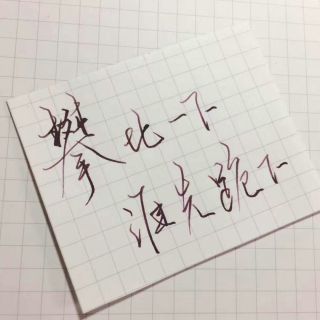 攀比一下
谁先跪下